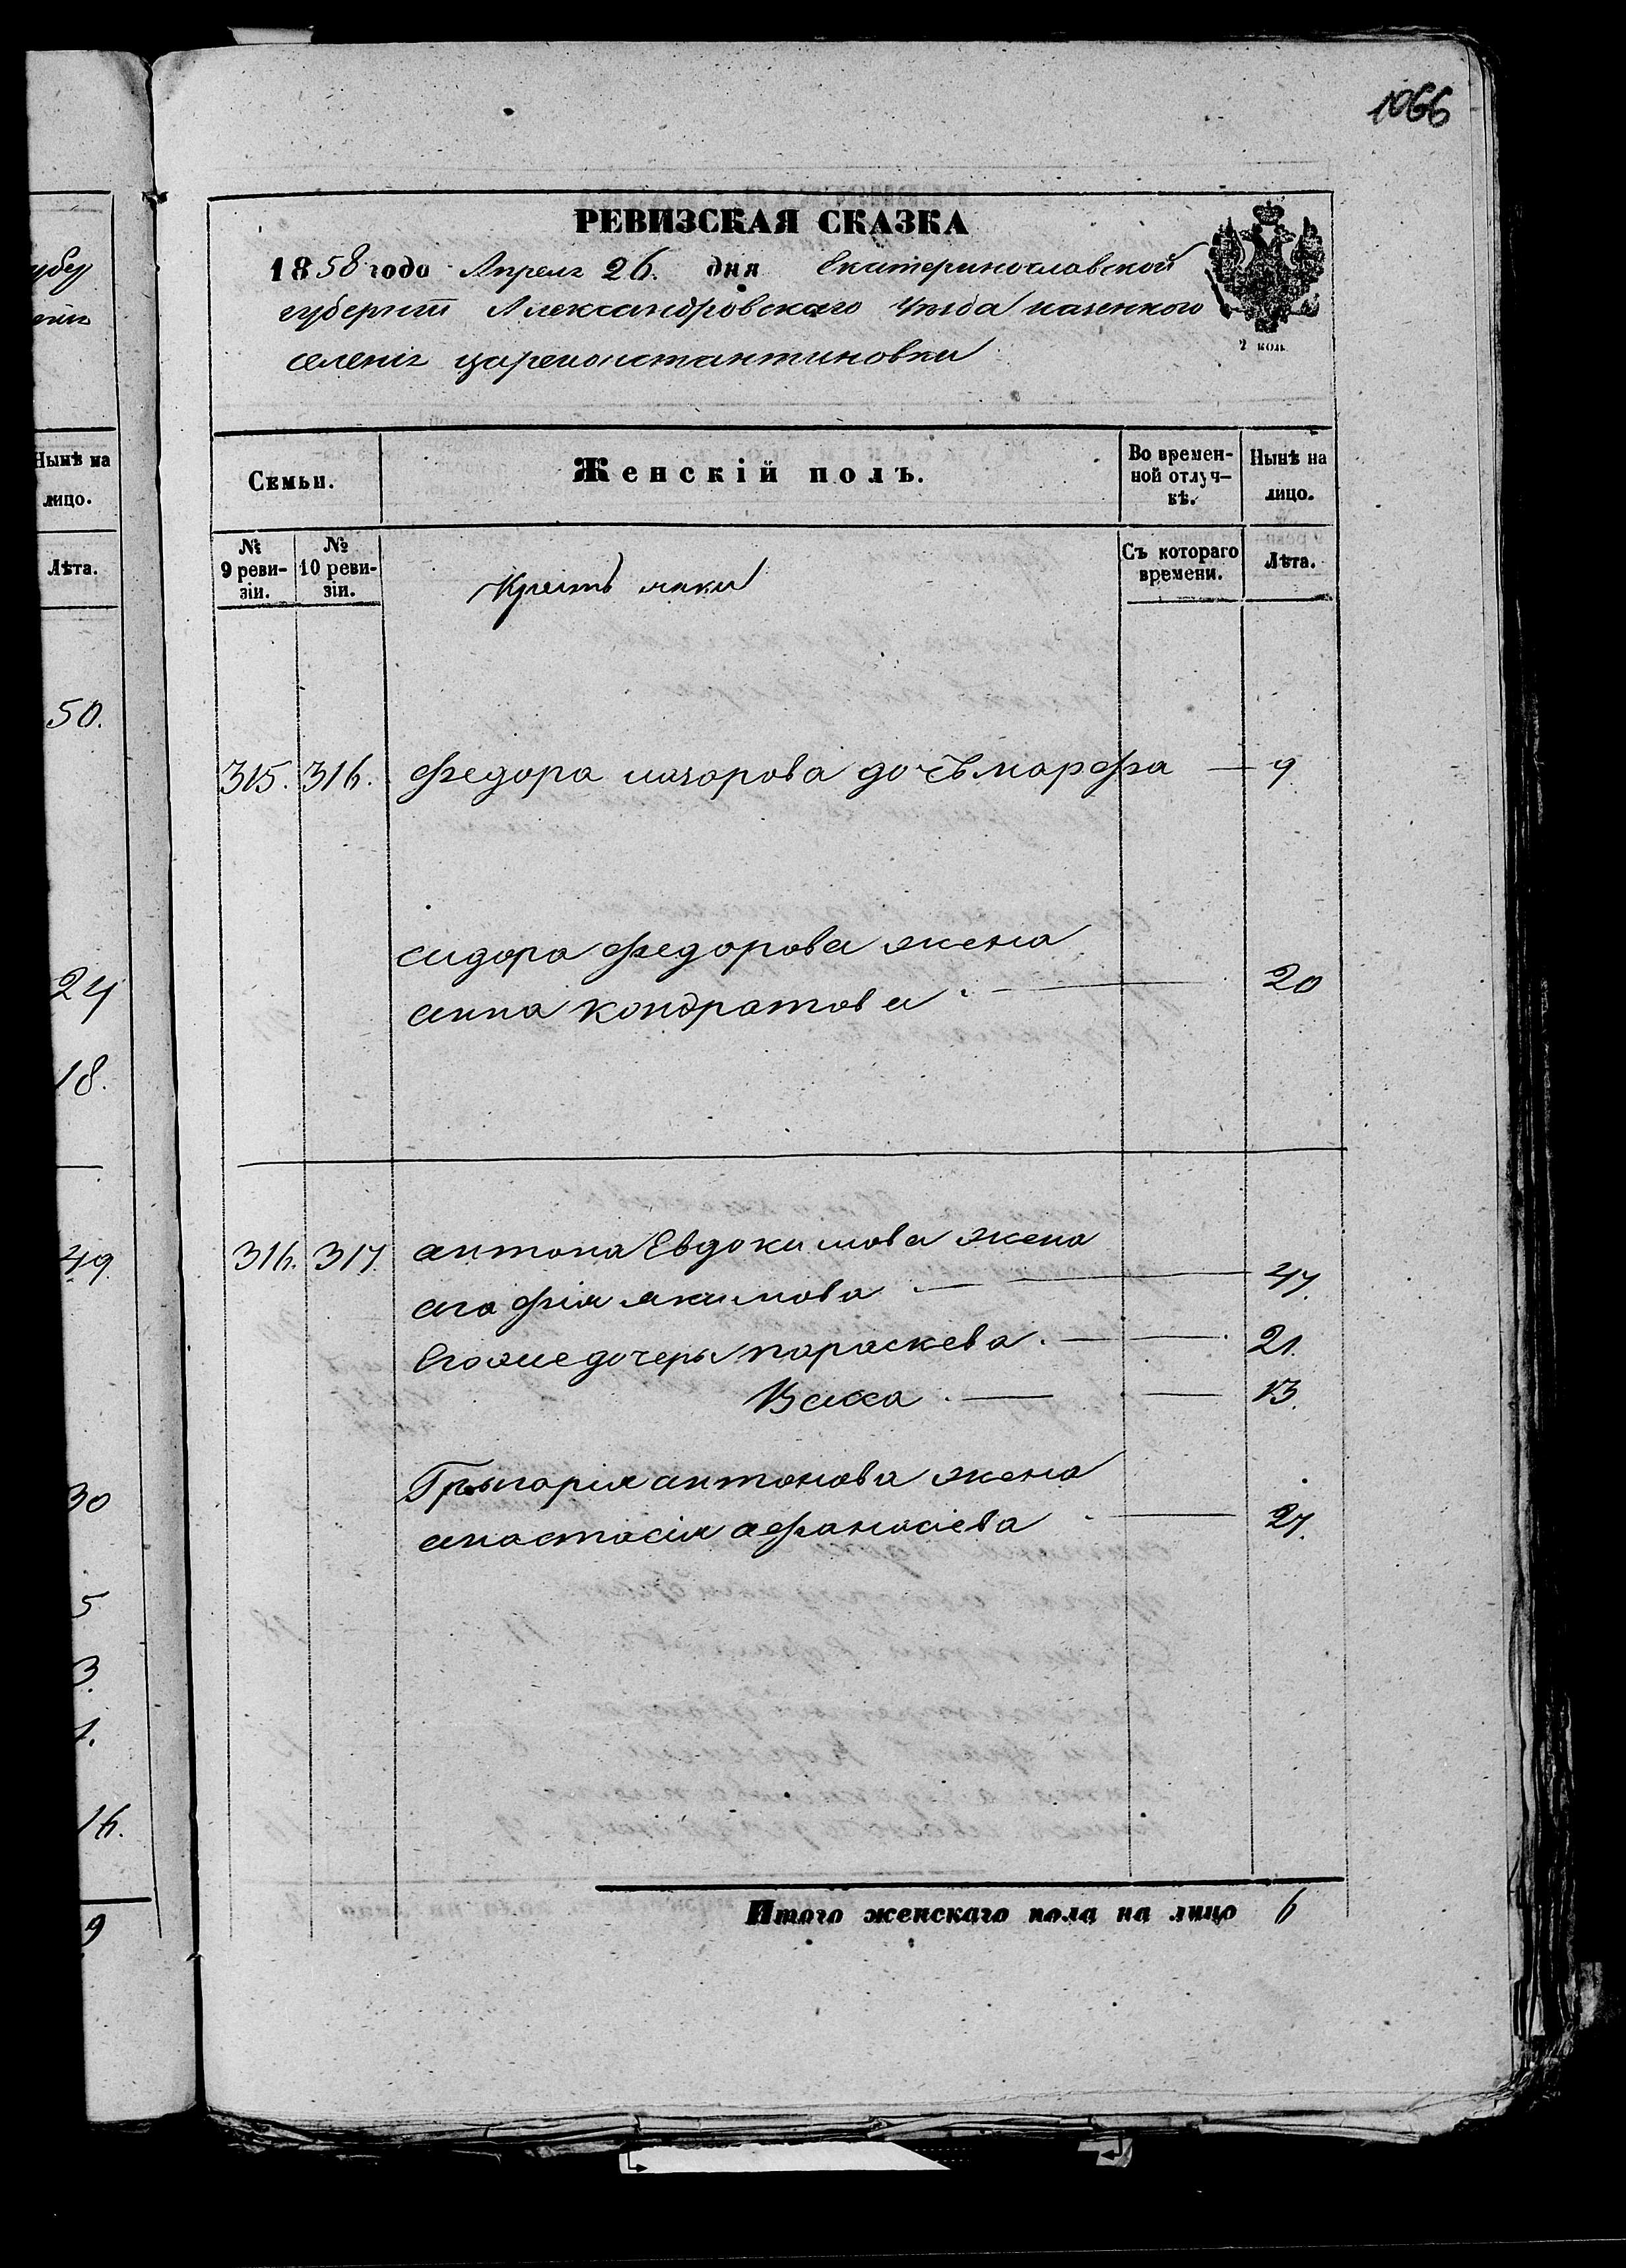 1066
РЕВИЗСКАЯ СКАЗКА
1858 года Апреля 26. дня Екатеринославской
губернии Александровскаго Уезда казенного
селенія Цареконстантиновки
2 коп.
Семьи.
Женскій полъ.
Во времен-
ной отлуч-
кѣ.
Нынѣ на
лицо.
№
9 реви-
зіи.
№
10 реви-
зіи.
Крестьянки
Съ котораго
времени.
Лѣта.
315. 316. Федора назарова дочь марфа — 9
сидора федорова жена
анна кондратова — 20
316. 317. антона Евдокимова жена
агафия якимова — 47.
Егоже дочеры параскева — 21.
Васса — 13.
Грыгорія антонова жена
анастасія афанасіева — 27.
Итого женскаго пола на лицо 6
Нынѣ на
лицо.
Лѣта.
50.
24
18.
49.
30
5
3.
1.
16.
9